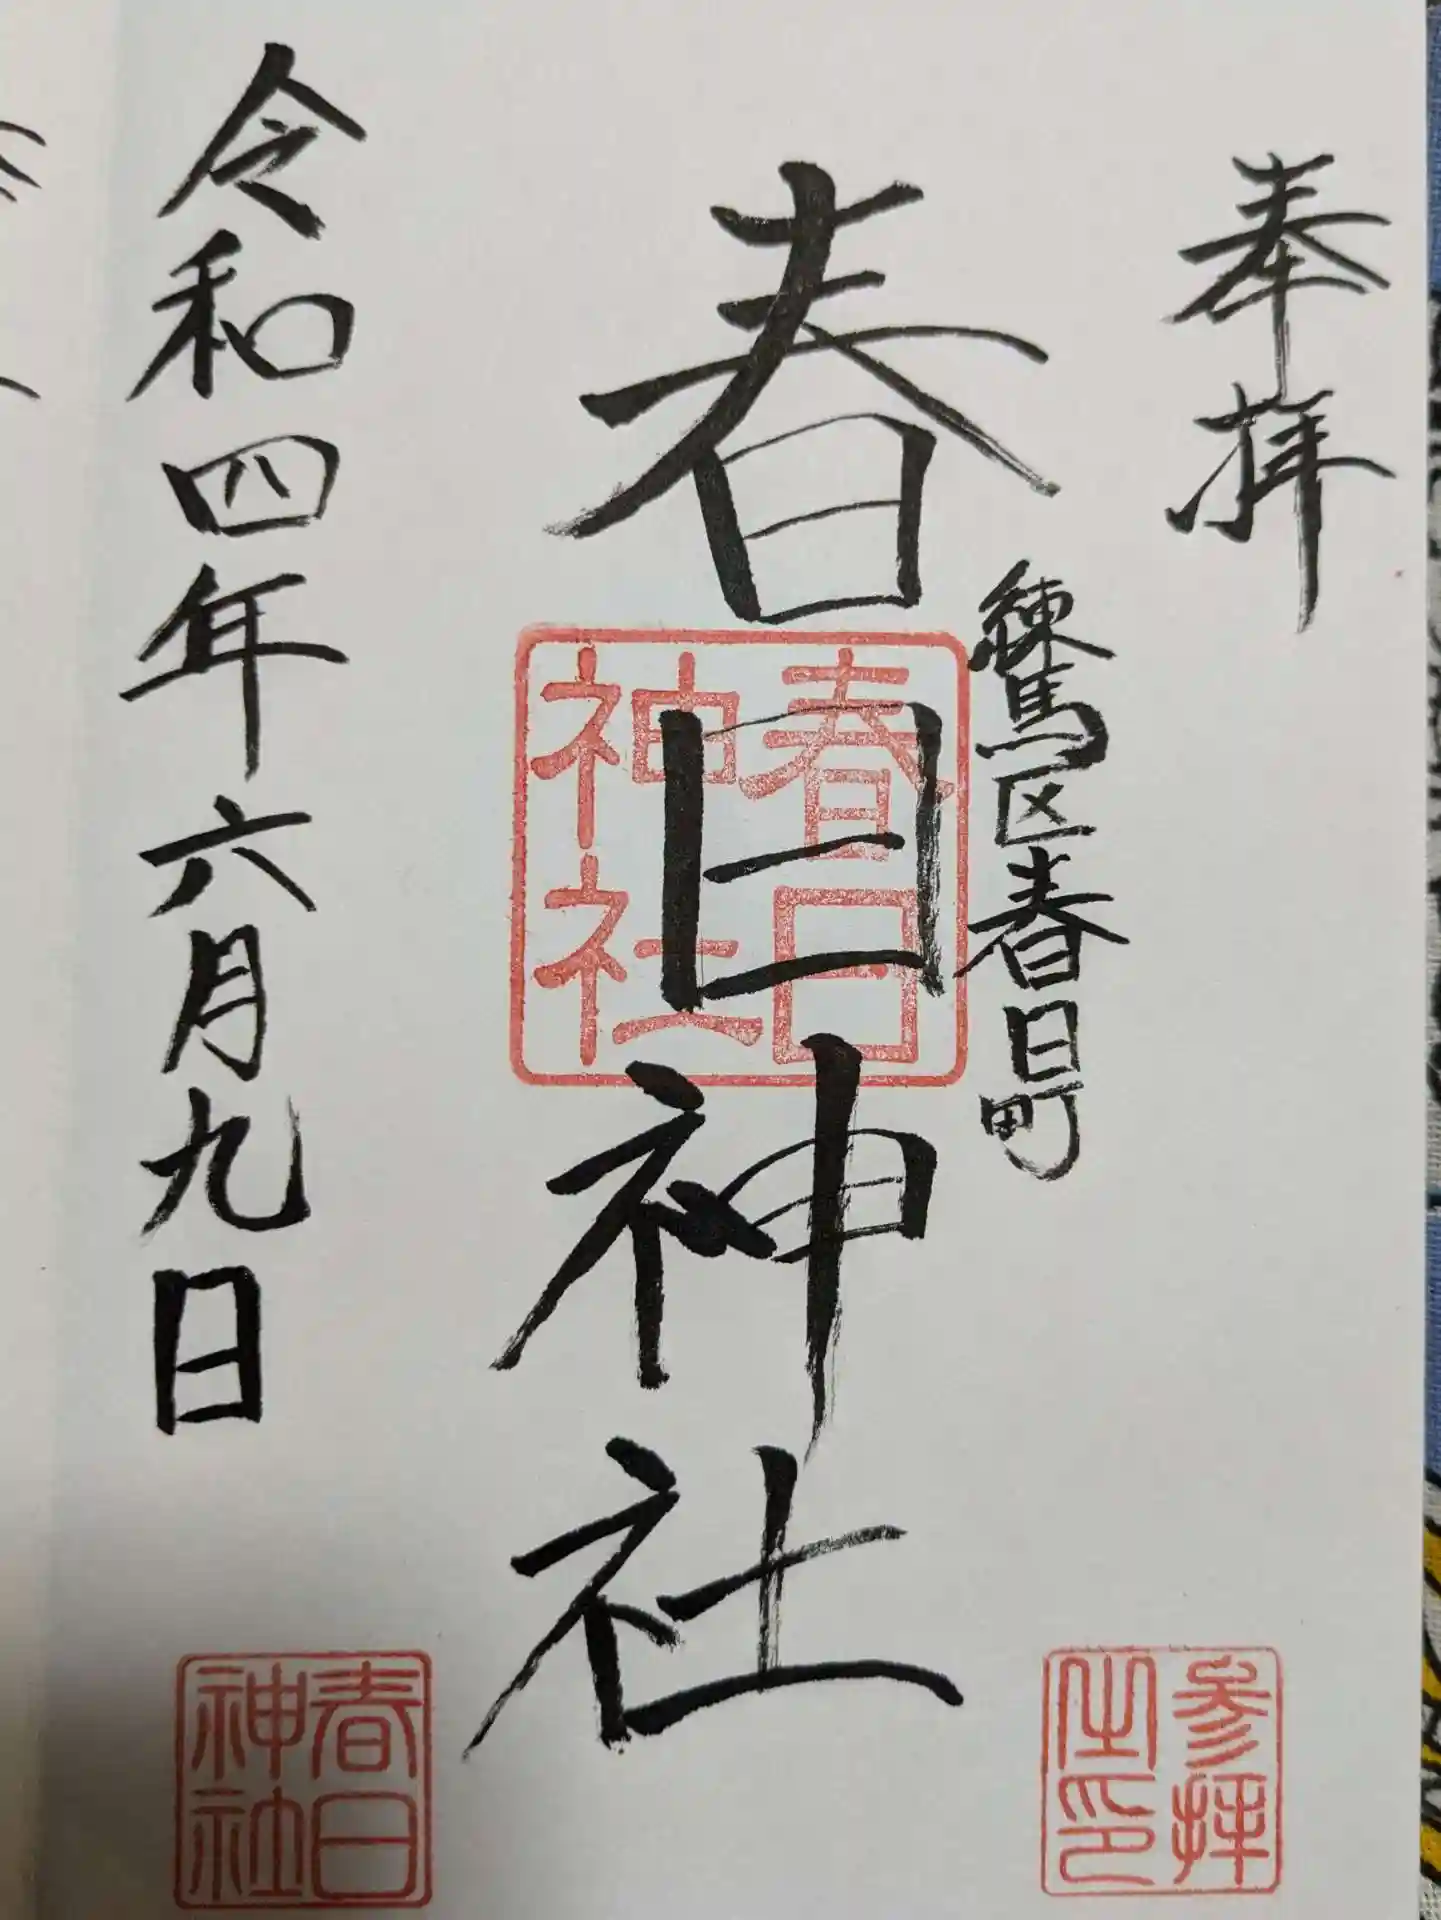 奉拝
練馬区春日町
春日神社
令和四年六月九日
春日
神社
参拝
之印
春日
神社